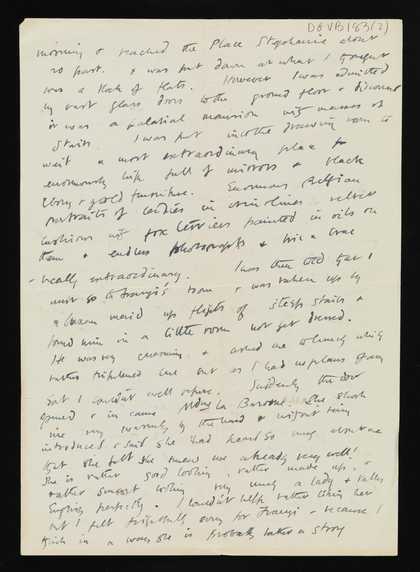 D6VB183(2)
morning & reached the Place Stephanie about
20 past. I was put down at what I thought
was a block of flats. However I was admitted
by vast glass doors to the ground floor & discovered
it was a palatial mansion with masses of
stairs. I was put into the drawing room to
wait a most extraordinary place &
enormously high full of mirrors & black
Ebony & gold furniture. Enormous Belgian
portraits of Ladies in crinolines velvet
cushions with fox terriers painted in oils on
them & endless photographs &
– really extraordinary. I was then told that I
must go to Franzi's room & was taken up by
a buxom maid up flights of steep stairs &
found him in a little room not yet dressed.
He was very charming & asked me to lunch which
rather frightened me but as I had no plans of any
sort I couldn't well refuse. Suddenly the door
opened & in came Mdme La Baronne. She shook
me very warmly by the hand & without being
introduced & said she had heard so much about me
that she felt she knew me already very well!
She is rather good looking, rather made up, &
rather smart looking very much a lady & talks
English perfectly. I couldn't help rather liking her
but I felt frightfully sorry for Franzi & because I
think in a way she is probably rather a strong